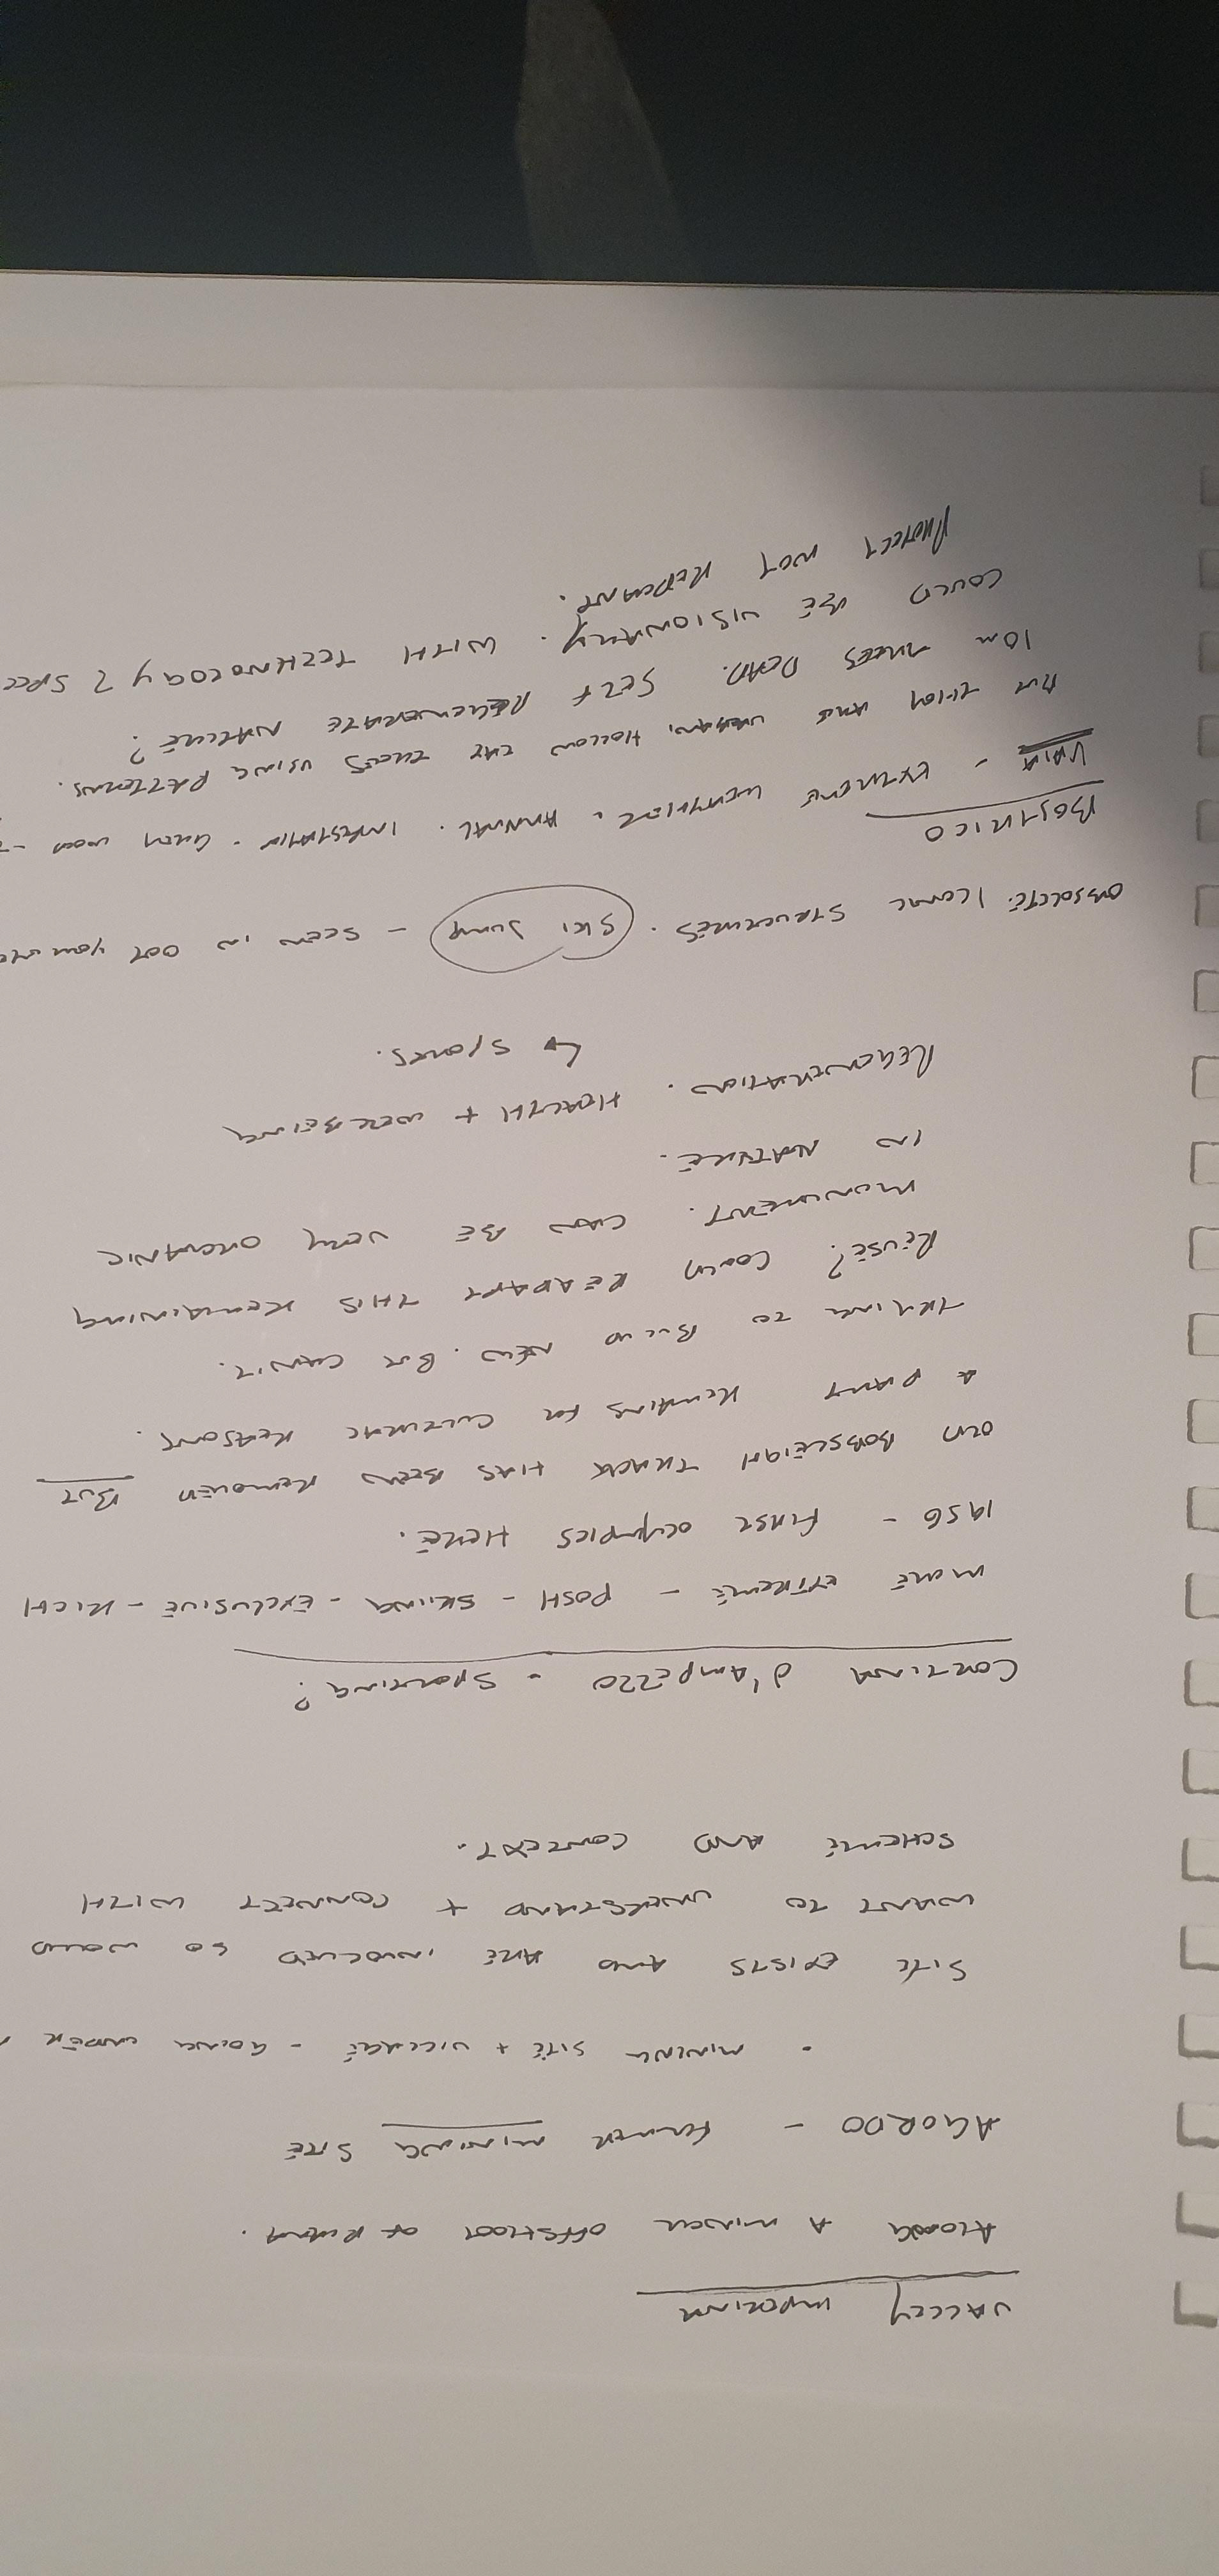 VALLEY IMPERINA
ALONG A MINOR OFFSHOOT OF RIVER.
AGORDO - FORMER MINING SITE
• MINING SITE + VILLAGE - GOING UNDER
SITE EXISTS AND ARE INVOLVED SO WOULD
WANT TO UNDERSTAND + CONNECT WITH
SCHEME AND CONTEXT.
CORTINA d'AMPEZZO - SPORTING?
MORE EXTREME - POSH - SKIING - EXCLUSIVE - RICH
1956 - FIRST OLYMPICS HERE.
OLD BOBSLEIGH TRACK HAS BEEN REMOVED BUT
A PART REMAINS FOR CULTURAL REASONS.
TRYING TO BUILD NEW. BUT CAN'T.
REUSE? COULD READAPT THIS REMAINING
MONUMENT. CAN BE VERY ORGANIC
IN NATURE.
REGENERATION. HEALTH + WELLBEING
↳ SPORTS.
OBSOLETE ICONIC STRUCTURES. SKI JUMP - SEEN IN 007
BOSTRICO
VAIA - EXTREME WEATHER. ANNUAL. INFESTATION.
BUT THEY ARE HOLLOW THE TREES USING PATTERNS.
10m TREES DEAD. SELF REGENERATE NATURE?
COULD BE VISIONARY. WITH TECHNOLOGY?
PROTECT NOT REPLANT.